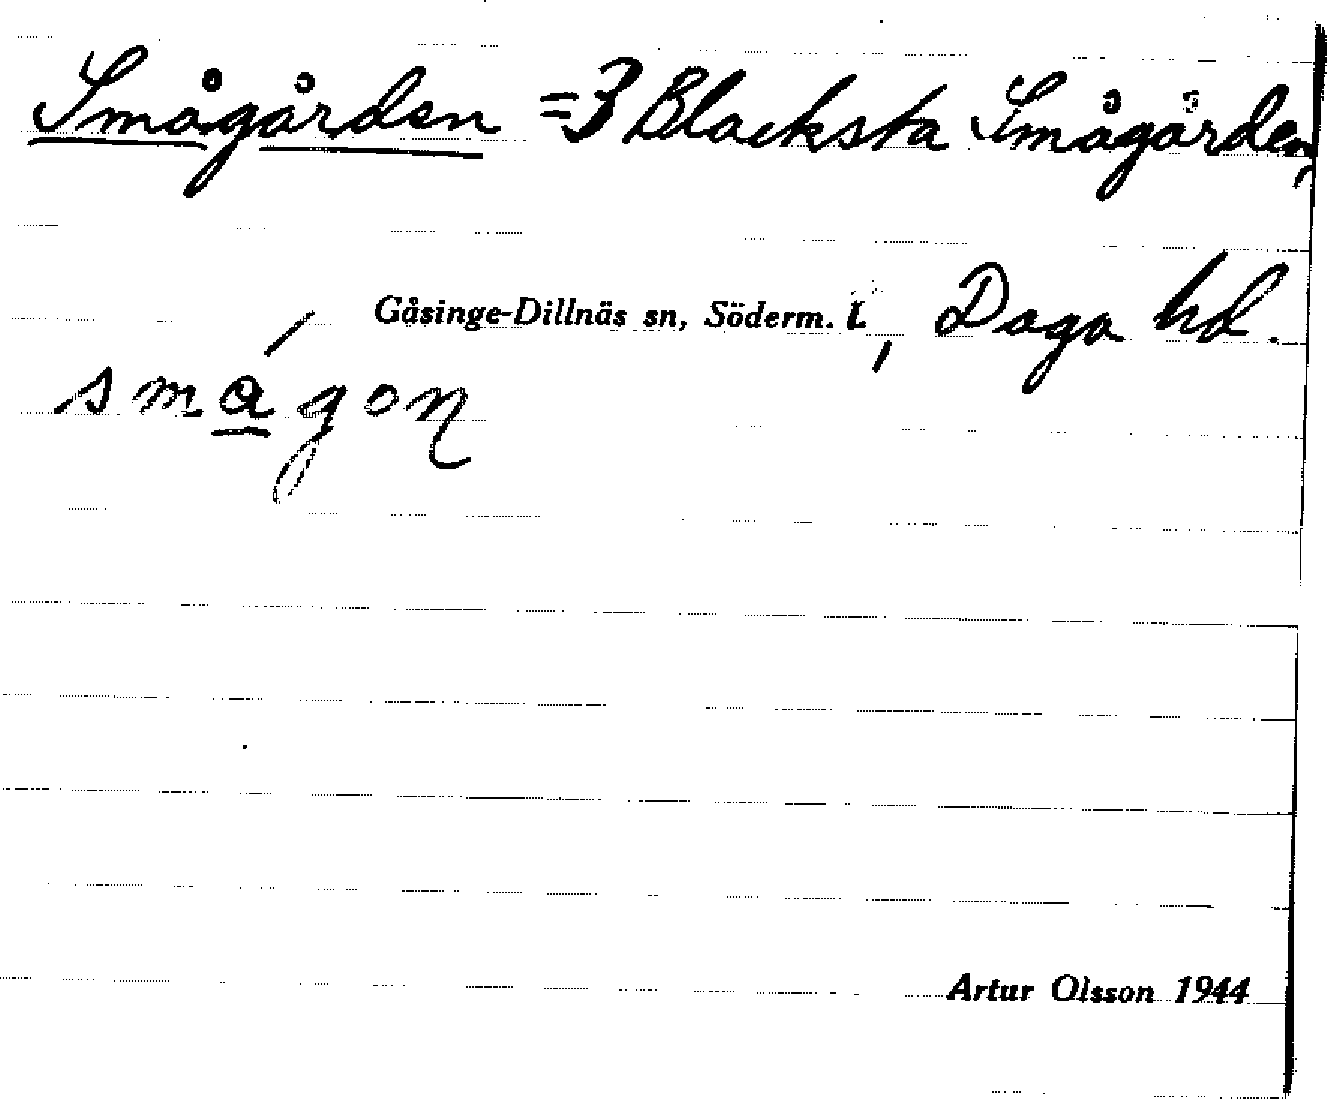 Smågården = 3 Blacksta Smågården,
Gåsinge-Dillnäs sn, Söderm. l., Daga hd.
smågon
Artur Olsson 1944